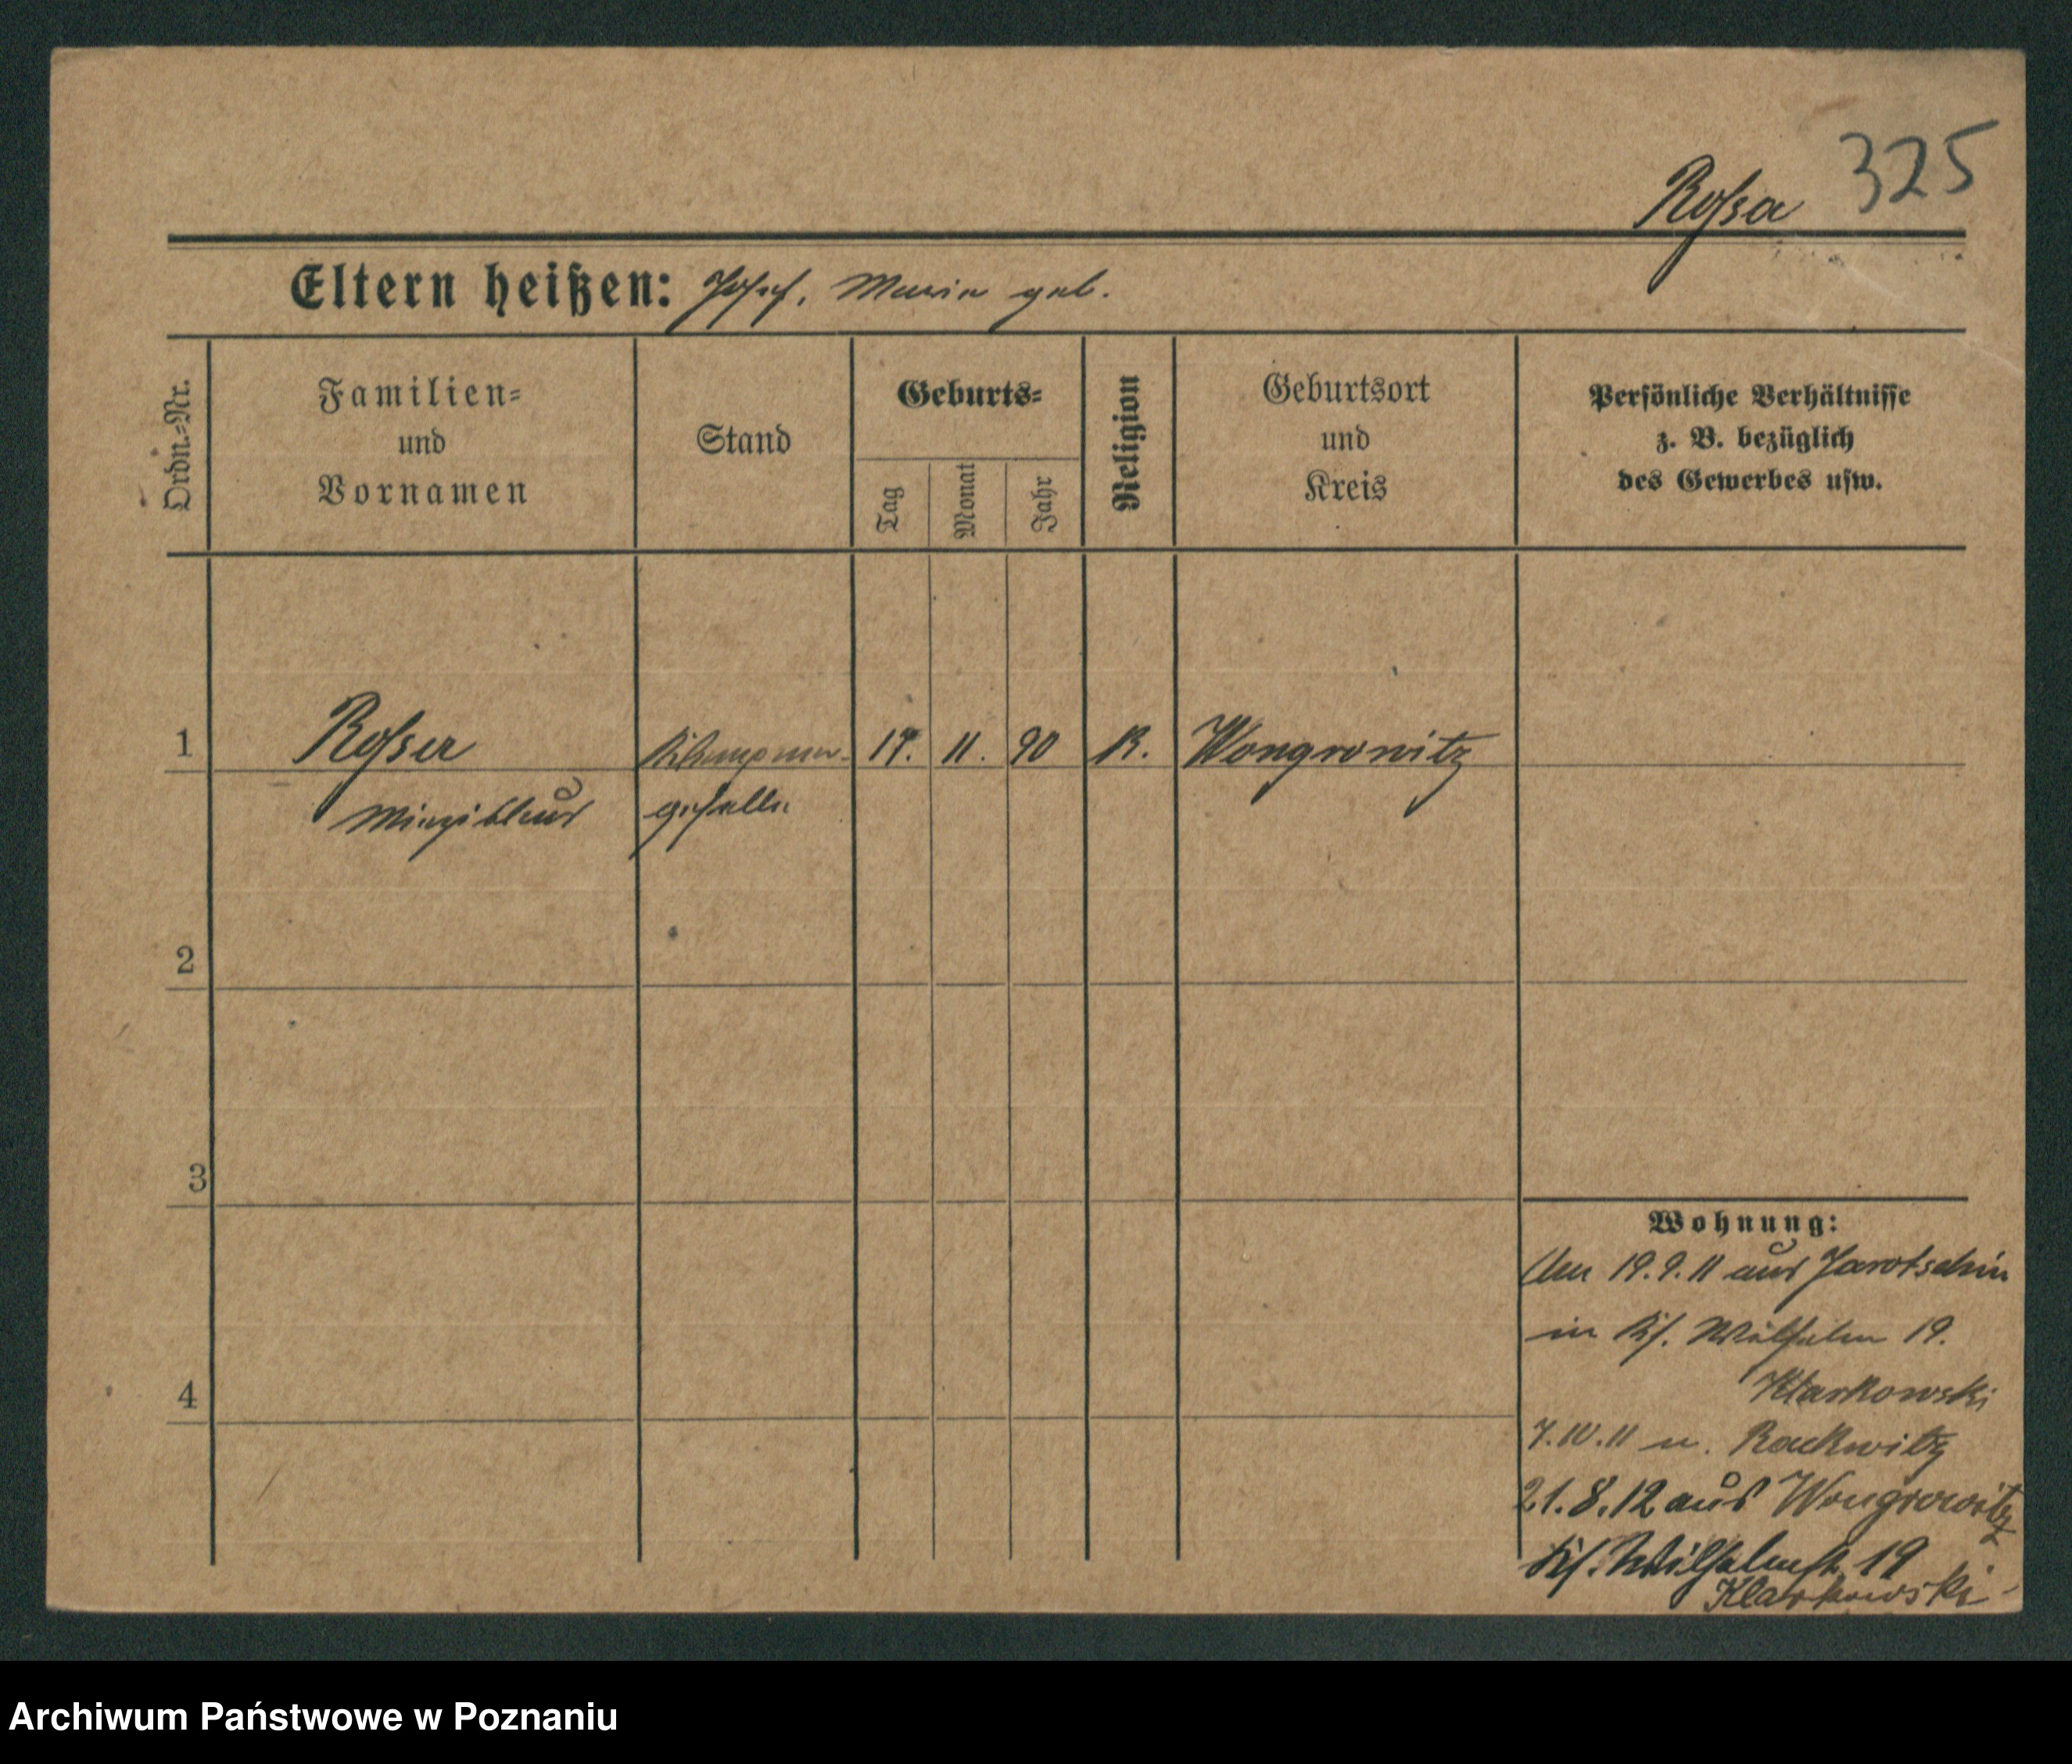 325
Roſsa
Eltern heißen: Josef, Maria geb.
Ordn.-Nr.
Familien-
und
Vornamen
Stand
Geburts-
Tag
Monat
Jahr
Religion
Geburtsort
und
Kreis
Persönliche Verhältnisse
z. B. bezüglich
des Gewerbes usw.
1 Roſsa Klempner- 17. 11. 90 K. Wongrowitz
geselle
2
3
4
Wohnung:
Am 19.9.11 aus Jarotschin
in Ks. Wilhelm 19.
Klarkowski
7.10.11 n. Rackwitz
21.8.12 aus Wongrowitz
Ks. Wilhelmstr. 19
Klarkowski
Archiwum Państwowe w Poznaniu